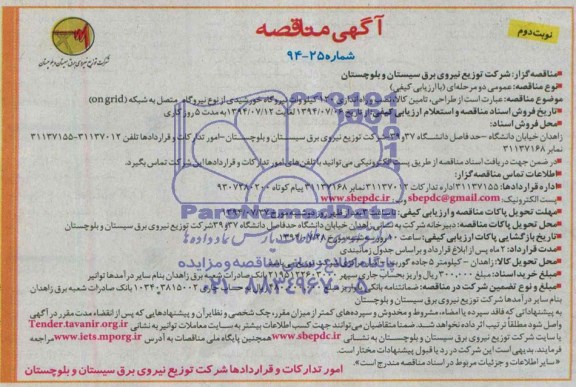 آگهی مناقصه
نوبت دوم
شماره ۲۵-۹۴
شرکت توزیع نیروی برق سیستان و بلوچستان
مناقصه گزار: شرکت توزیع نیروی برق سیستان و بلوچستان
نوع مناقصه: عمومی دو مرحله‌ای (با ارزیابی کیفی)
موضوع مناقصه: عبارت است از طراحی، تامین کالا، نصب و راه اندازی کیلو وات نیروگاه خورشیدی از نوع نیروگاه متصل به شبکه (on grid)
تاریخ فروش اسناد مناقصه و استعلام ارزیابی کیفی: از تاریخ ۱۳۹۴/۰۷/۰۶ لغایت ۱۳۹۴/۰۷/۱۲ به مدت ۵ روز کاری
محل فروش اسناد:
زاهدان خیابان دانشگاه -حدفاصل دانشگاه ۳۷ و ۳۹-شرکت توزیع نیروی برق سیستان و بلوچستان-امور تدارکات و قراردادها تلفن ۳۱۱۳۷۰۱۲-۳۱۱۳۷۱۵۵
نمابر ۳۱۱۳۷۱۶۸
در ضمن جهت دریافت اسناد مناقصه از طریق پست الکترونیکی می توانید با تلفن های امور تدارکات و قراردادها این شرکت تماس بگیرد.
اطلاعات تماس مناقصه گزار:
اداره قراردادها: ۳۱۱۳۷۱۵۵ اداره تدارکات ۳۱۱۳۷۰۱۲ نمابر ۳۱۱۳۷۱۶۸ پیام کوتاه
پست الکترونیک: sbepdc@gmail.com www.sbepdc.ir
مهلت تحویل پاکات مناقصه و ارزیابی کیفی:
محل تحویل پاکات مناقصه: دبیرخانه شرکت به نشانی زاهدان خیابان دانشگاه حدفاصل دانشگاه ۳۷ و ۳۹ شرکت توزیع نیروی برق سیستان و بلوچستان
تاریخ بازگشایی پاکات ارزیابی کیفی: ساعت
مدت قرارداد: ماه پس از ابلاغ قرارداد و براساس جدول زمانبندی
محل تحویل کالا: زاهدان - کیلومتر ۵ جاده
مبلغ خرید اسناد: ۳۰۰,۰۰۰ ریال واریز بحساب جاری سپهر بانک صادرات شعبه برق زاهدان بنام سایر درآمدها تواتیر
مبلغ و نوع تضمین شرکت در مناقصه: ضمانتنامه بانکی بانک صادرات شعبه برق زاهدان
بنام سایر درآمدها شرکت توزیع نیروی برق سیستان و بلوچستان
به پیشنهاداتی که فاقد سپرده یا امضاء، مشروط و مخدوش و سپرده‌های کمتر از میزان مقرر، چک شخصی و نظایر آن و پیشنهادهایی که پس از انقضاء مدت مقرر در آگهی
واصل شود مطلقا ترتیب اثر داده نخواهد شد. ضمنا متقاضیان می‌توانند جهت کسب اطلاعات بیشتر به سایت معاملات توانیر به نشانی Tender.tavanir.org.ir
یا سایت شرکت توزیع نیروی برق سیستان و بلوچستان به نشانی www.sbepdc.ir همچنین پایگاه ملی مناقصات به آدرس www.iets.mporg.ir مراجعه
فرمایند. بدیهی است این شرکت در رد یا قبول پیشنهادات مختار است.
سایر اطلاعات و جزئیات مربوط در اسناد مناقصه مندرج است
امور تدارکات و قراردادها شرکت توزیع نیروی برق سیستان و بلوچستان
ParsNamadData
پایگاه اطلاع رسانی مناقصه و مزایده
۰۲۱-۸۸۳۴۹۶۷۰-۵